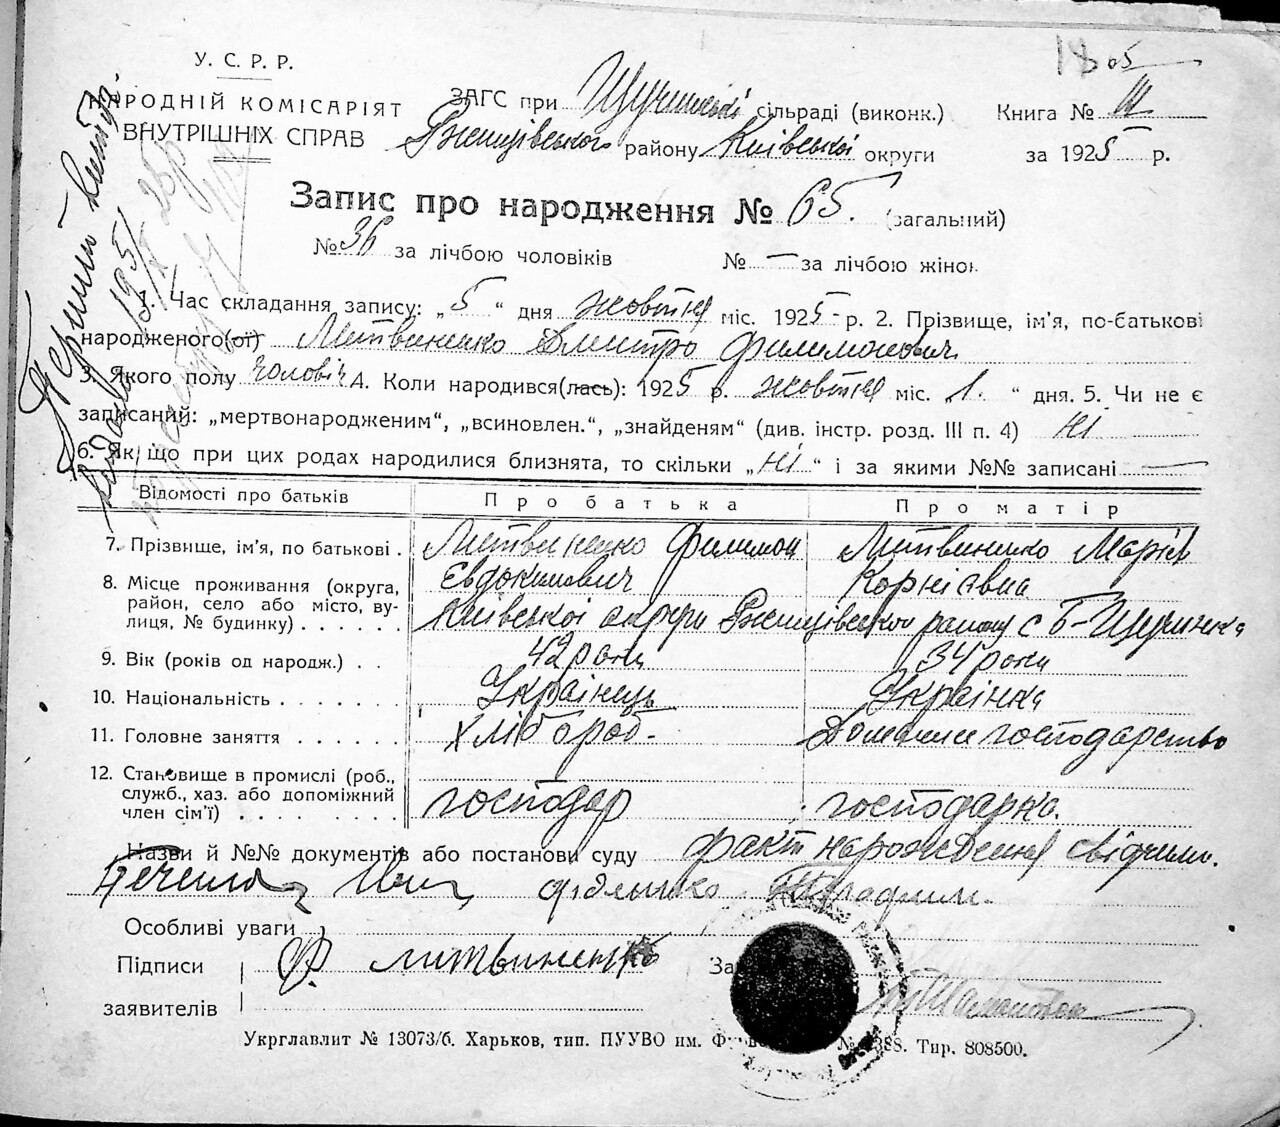 У. С. Р. Р.
НАРОДНІЙ КОМІСАРІЯТ
ВНУТРІШНІХ СПРАВ
ЗАГС при Щучинській сільраді (виконк.)
Ржищівського району Київської округи
Книга № III
за 1925 р.
Запис про народження № 65. (загальний)
№ 36 за лічбою чоловіків № — за лічбою жінок
1. Час складання запису: „5“ дня жовтня міс. 1925 р. 2. Прізвище, ім'я, по-батькові
народженого(ої) Литвиненко Дмитро Филимонович
3. Якого полу чоловіч 4. Коли народився(лась): 1925 р. жовтня міс. „1.“ дня. 5. Чи не є
записаний: „мертвонародженим“, „всиновлен.“, „знайденям“ (див. інстр. розд. III п. 4) Ні
6. Як що при цих родах народилися близнята, то скільки „Ні“ і за якими №№ записані —
Відомості про батьків Про батька Про матір
7. Прізвище, ім'я, по батькові . Литвиненко Филимон Євдокимович Литвиненко Марія Корнієвна
8. Місце проживання (округа,
район, село або місто, ву-
лиця, № будинку) . . . . . . Київської округи Ржищівського району с Б-Щучинка
9. Вік (років од народж.) . . 42 роки 34 роки
10. Національність . . . . . . . Українець Українка
11. Головне заняття . . . . . . Хлібороб- Домашнє господарство
12. Становище в промислі (роб.,
служб., хаз. або допоміжний
член сім'ї) . . . . . . . . . господар господарка.
Назви й №№ документів або постанови суду факт народження свідчили.
Особливі уваги
Підписи
заявителів
Ф. Литвиненко
Укрглавлит № 13073/б. Харьков, тип. ПУУВО им. 388. Тир. 808500.